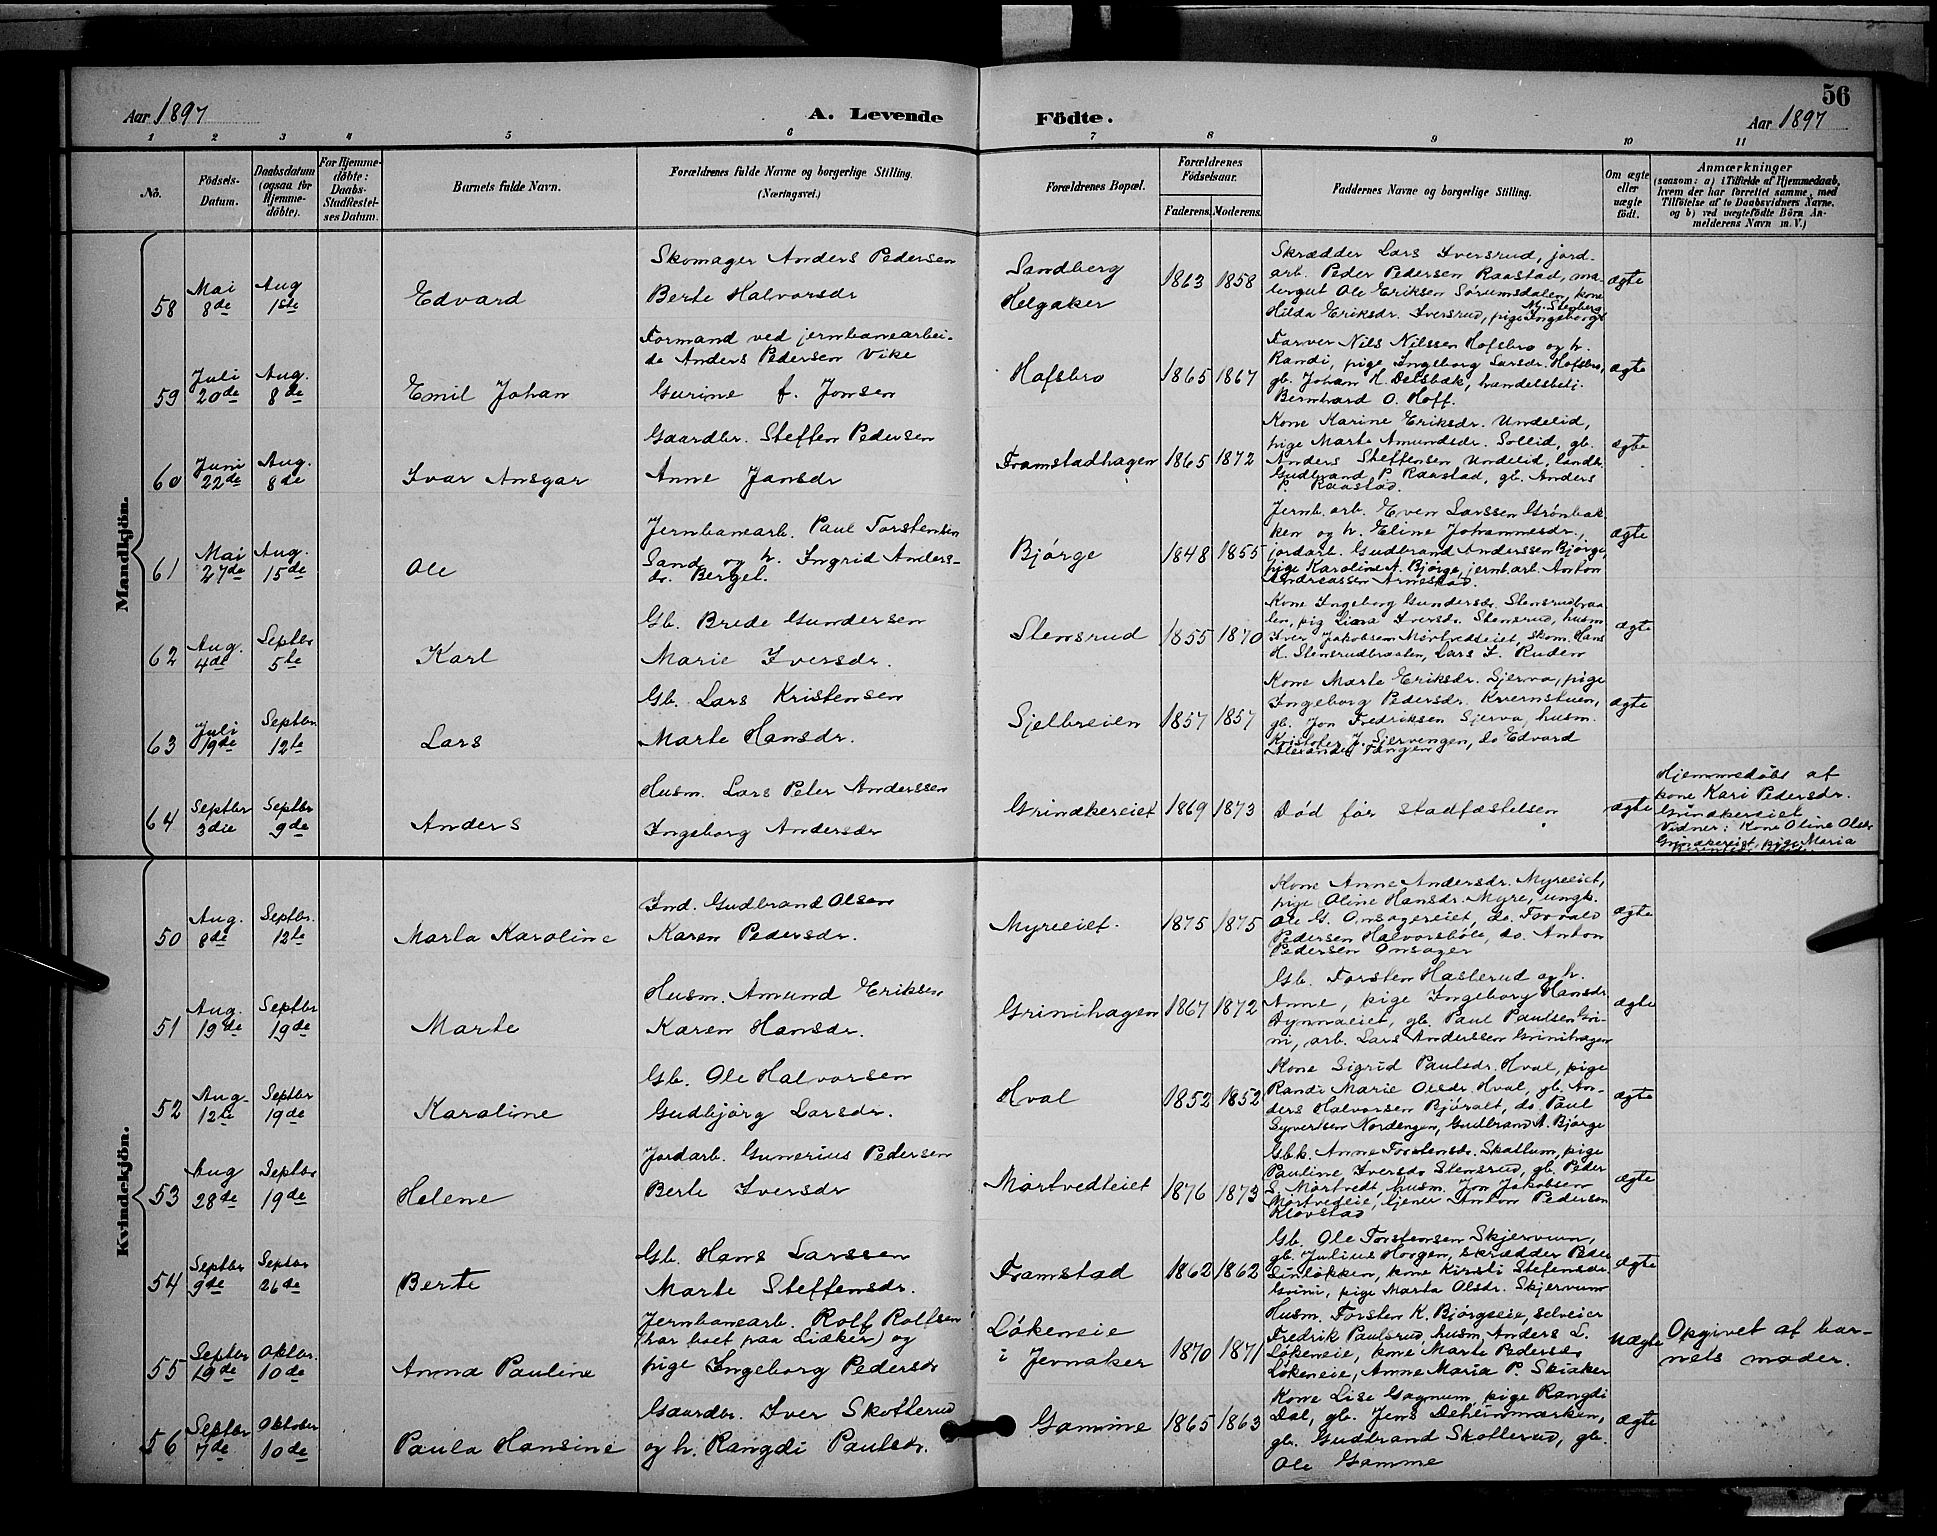 56
Aar 1897
A. Levende Födte.
Aar 1897
1 2 3 4 5 6 7 8 9 10 11
No.
Födsels-
Datum.
Daabsdatum
(ogsaa for
Hjemme-
döbte).
For Hjemme-
döbte:
Daabs-
Stadfæstel-
ses Datum.
Barnets fulde Navn.
Forældrenes fulde Navne og borgerlige Stilling.
(Næringsvei.)
Forældrenes Bopæl.
Forældrenes
Födselsaar.
Faderens. Moderens.
Faddernes Navne og borgerlige Stilling.
Om ægte
eller
uægte
födt.
Anmærkninger
(saasom: a) i Tilfælde af Hjemmedaab,
hvem der har forrettet samme, med
Tilföielse af to Daabsvidners Navne.
og b) ved uægtefödte Börn An-
melderens Navn m. V.)
Mandkjön.
58
Mai
8de
Aug
1ste
Edvard
Skomager Anders Pedersen
Berte Halvorsdr
Sandberg
Helgaker
1863 1858
Skrædder Lars Iversrud, jord-
arb. Peder Pedersen Raastad, ma-
lergut Ole Eriksen Sørumsdalen, kone
Hilda Eriksdr. Iversrud, pige Ingeborg
Stenberg
ægte
59
Juli
20de
Aug.
8de
Emil Johan
Formand ved jernbanearbei-
de Anders Pedersen Vike
Gurine f. Jonsen
Hofsbro
1865 1867
Farver Nils Nilssen Hofsbro og h.
Randi, pige Ingeborg Larsdr. Hofsbro,
gb. Johan H. Delsbæk, handelsbetj.
Bernhard O. Hoff.
ægte
60
Juni
22de
Aug.
8de
Ivar Ansgar
Gaardbr. Steffen Pedersen
Anne Jansdr
Framstadhagen
1865 1872
Kone Karine Eriksdr. Undelid,
pige Marte Amundsdr. Sollid, gb.
Anders Steffensen Undelid, landh.
Gudbrand P. Raastad, gb. Anders
P. Raastad.
ægte
61
Mai
27de
Aug.
15de
Ole
Jernbanearb. Paul Torstensen
Sand og h. Ingrid Anders-
dr. Berget.
Bjørge
1848 1855
Jernb. arb. Even Larssen Grønbak-
ken og h. Eline Johannesdr.,
jordarb. Gudbrand Anderssen Bjørge,
pige Karoline A. Bjørge, jernb.arb. Anton
Andreassen Arnestad.
ægte
62
Aug.
4de
Septbr
5te
Karl
Gb. Brede Gundersen
Marie Iversdr.
Stensrud
1855 1870
Kone Ingeborg Gundersdr. Stensrudbraa-
ten, pig Lina Iversdr. Stensrud, husm
Iver Jakobsen Mørtvedteiet, skom. Hans
H. Stensrudbraaten, Lars I. Ruden
ægte
63
Juli
19de
Septbr.
12te
Lars
Gb. Lars Kristensen
Marte Hansdr.
Sjelbreien
1857 1857
Kone Marte Eriksdr. Sjerva, pige
Ingeborg Pedersdr. Kvernstuen,
gb. Jon Fredriksen Sjerva, husm.
Kristofer J. Sjervengen, do Edvard
Alexander Tangen
ægte
64
Septbr
3die
Septbr
9de
Anders
Husm. Lars Peter Anderssen
Ingeborg Andersdr
Grindkereiet
1869 1873
Død før stadfæstelsen
ægte
Hjemmedøbt af
kone Kari Pedersdr.
Grindkereiet
Vidner: Kone Oline Olsdr
Grindkereiet, pige Maria
Kvindekjön.
50
Aug.
8de
Septbr.
12te
Marta Karoline
Ind. Gudbrand Olsen
Karen Pedersdr.
Myreeiet.
1875 1875
Kone Anne Andersdr. Myreeiet,
pige Oline Hansdr. Myre, ungk.
Ole G. Onsagereiet, do. Torvald
Pedersen Halvorsbøle, do. Anton
Pedersen Onsager
ægte
51
Aug.
19de
Septbr
19de
Marte
Husm. Amund Eriksen
Karen Hansdr.
Grinihagen
1867 1872
Gb. Torsten Hasterud og h.
Anne, pige Ingeborg Hansdr
Dynnaeiet, gb. Paul Paulsen Gri-
ni, arb. Lars Anderssen Grinihagen
ægte
52
Aug.
12te
Septbr
19de
Karoline
Gb. Ole Halvorsen
Gudbjørg Larsdr.
Hval
1852 1852
Kone Sigrid Paulsdr. Hval, pige
Randi Marie Olsdr. Hval, gb. An-
ders Halvorsen Bjøralt, do. Paul
Syvertsen Nordengen, Gudbrand A. Bjørge
ægte
53
Aug
28de
Septbr
19de
Helene
Jordarb. Gunerius Pedersen
Berte Iversdr
Mørtvedteiet
1876 1873
Gbk. Anne Torstensdr. Skattum, pige
Pauline Iversdr Stensrud, gb. Peder
S. Mørtvedt, husm. Jon Jakobsen
Mørtvedteie, tjener Anton Pedersen
Klovstad
ægte
54
Septbr
9de
Septbr
26de
Berte
Gb. Hans Larssen
Marte Steffensdr.
Framstad
1862 1862
Gb. Ole Torstensen Skjervum,
gb. Julius Horgen, skrædder Peder
Sinløkken, kone Kirsti Stefensdr.
Grini, pige Marta Olsdr. Skjervum
ægte
55
Septbr
19de
Oktbr.
10de
Anna Pauline
Jernbanearb. Rolf Rolfsen
(har boet paa Liaker) og
pige Ingeborg Pedersdr
Løkeneie
i Jevnaker
1870 1871
Husm. Torsten K. Bjørgeeie, selveier
Fredrik Paulsrud, husm. Anders L.
Løkeneie, kone Marte Pedersdr
Løkeneie, Anne Maria P. Skiaker
uægte
Opgivet af bar-
nets moder.
56
Septbr
7de
Oktober
10de
Paula Hansine
Gaardbr. Iver Skotterud
og h. Rangdi Paulsdr.
Gamme
1865 1863
Kone Lise Gagnum, pige Rangdi
Dal, gb. Jens Dehlinmarken,
gb. Gudbrand Skotterud, gb.
Ole Gamme
ægte